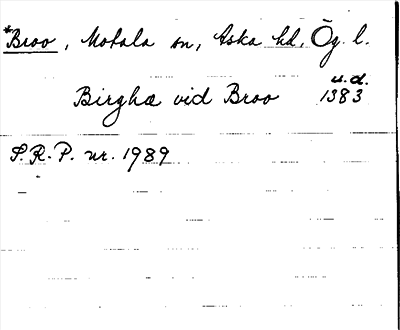 *Broo, Motala sn, Aska hd, Ög. l.
u.d.
Birghæ vid Broo 1383
S.R.P. nr. 1989